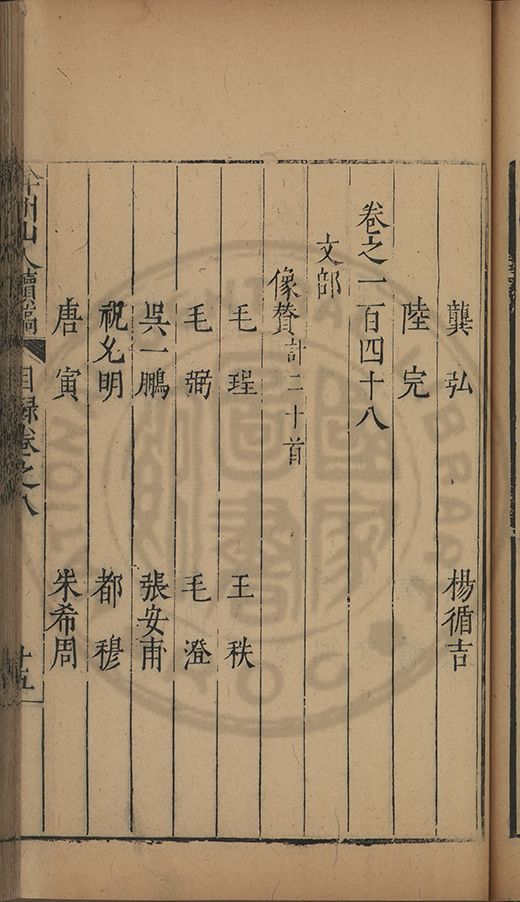 龔弘　楊循吉
陸完
卷之一百四十八
文部
像贊計二十首
毛珵　王秩
毛弼　毛澄
吳一鵬　張安甫
祝允明　都穆
唐寅　朱希周
山人續稿　目録卷之八　十五